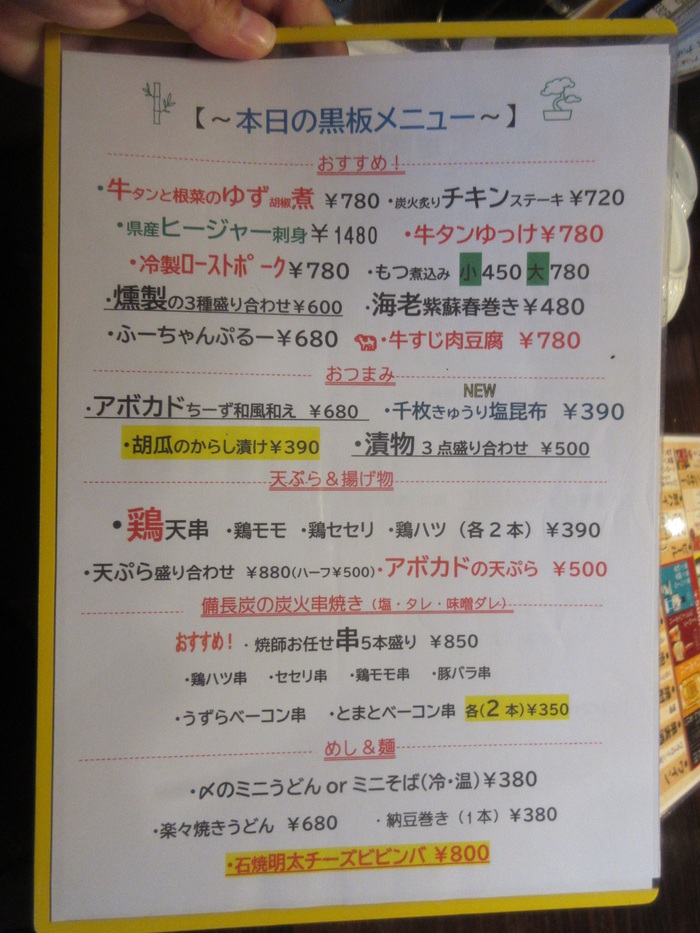 【～本日の黒板メニュー～】
おすすめ！
・牛タンと根菜のゆず胡椒煮 ￥780 ・炭火炙りチキンステーキ ￥720
・県産ヒージャー刺身￥1480 ・牛タンゆっけ￥780
・冷製ローストポーク￥780 ・もつ煮込み 小450 大780
・燻製の3種盛り合わせ￥600 ・海老紫蘇春巻き￥480
・ふーちゃんぷるー￥680 ・牛すじ肉豆腐 ￥780
おつまみ
NEW
・アボカドちーず和風和え ￥680 ・千枚きゅうり塩昆布 ￥390
・胡瓜のからし漬け￥390 ・漬物 3点盛り合わせ ￥500
天ぷら＆揚げ物
・鶏天串 ・鶏モモ ・鶏セセリ ・鶏ハツ （各2本）￥390
・天ぷら盛り合わせ ￥880(ハーフ￥500)・アボカドの天ぷら ￥500
備長炭の炭火串焼き（塩・タレ・味噌ダレ）
おすすめ！・焼師お任せ串5本盛り ￥850
・鶏ハツ串 ・セセリ串 ・鶏モモ串 ・豚バラ串
・うずらベーコン串 ・とまとベーコン串 各(2本)￥350
めし＆麺
・〆のミニうどん or ミニそば(冷・温)￥380
・楽々焼きうどん ￥680 ・納豆巻き（1本）￥380
・石焼明太チーズビビンバ ￥800